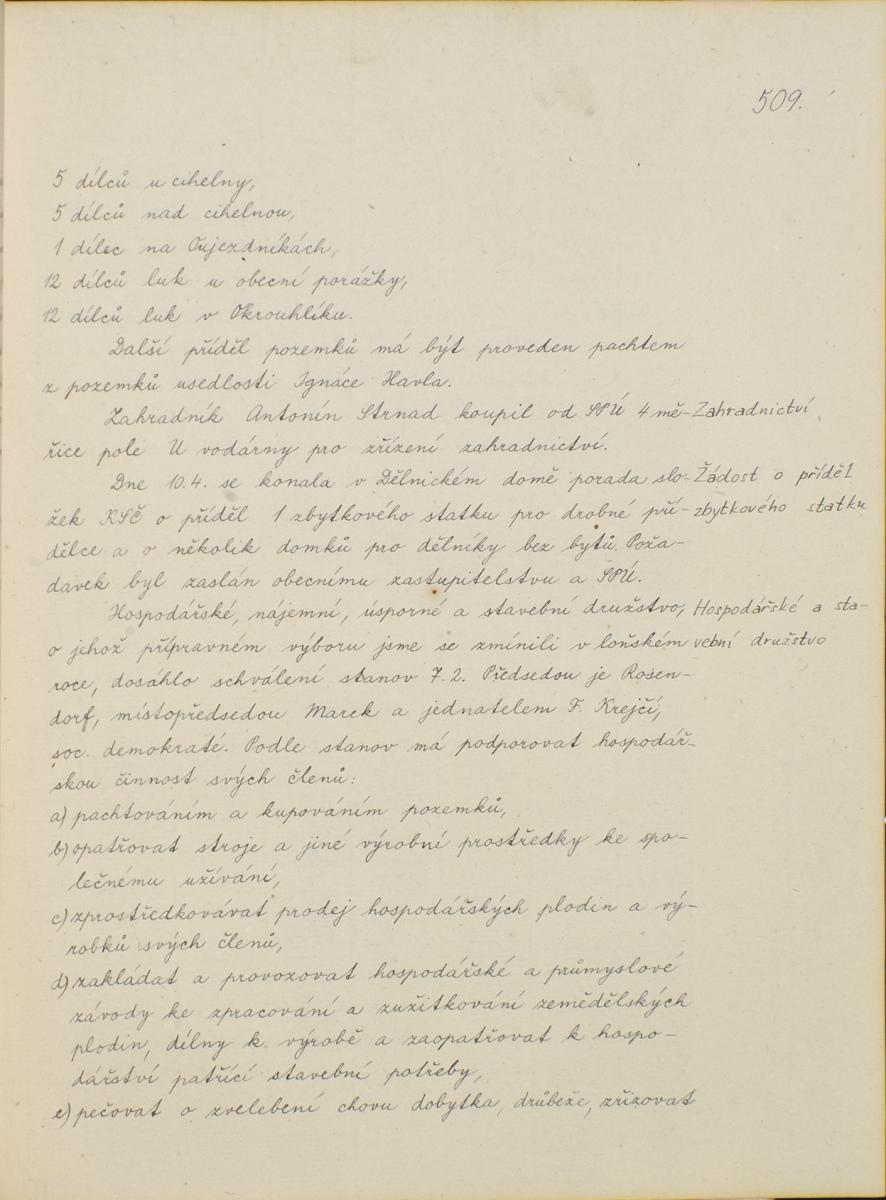 509.
5 dílců u cihelny,
5 dílců nad cihelnou,
1 dílec na Oujezdníkách,
12 dílců luk u obecní porážky,
12 dílců luk v Okrouhlíku.
Další příděl pozemků má být proveden pachtem
z pozemků usedlosti Ignáce Havla.
Zahradník Antonín Strnad koupil od SPÚ 4 mě- Zahradnictví
řice pole U vodárny pro zřízení zahradnictví.
Dne 10.4. se konala v Dělnickém domě porada slo- Žádost o příděl
žek KSČ o příděl 1 zbytkového statku pro drobné pří- zbytkového statku
dělce a o několik domků pro dělníky bez bytů. Poža-
davek byl zaslán obecnímu zastupitelstvu a SPÚ.
Hospodářské, nájemní, úsporné a stavební družstvo, Hospodářské a sta-
o jehož přípravném výboru jsme se zmínili v loňském vební družstvo
roce, dosáhlo schválení stanov 7.2. Předsedou je Rosen-
dorf, místopředsedou Marek a jednatelem F. Krejčí,
soc. demokraté. Podle stanov má podporovat hospodář-
skou činnost svých členů:
a) pachtováním a kupováním pozemků,
b) opatřovat stroje a jiné výrobní prostředky ke spo-
lečnému užívání,
c) zprostředkovávat prodej hospodářských plodin a vý-
robků svých členů,
d) zakládat a provozovat hospodářské a průmyslové
závody ke zpracování a zužitkování zemědělských
plodin, dílny k výrobě a zaopatřovat k hospo-
dářství patřící stavební potřeby,
e) pečovat o zvelebení chovu dobytka, drůbeže, zřizovat